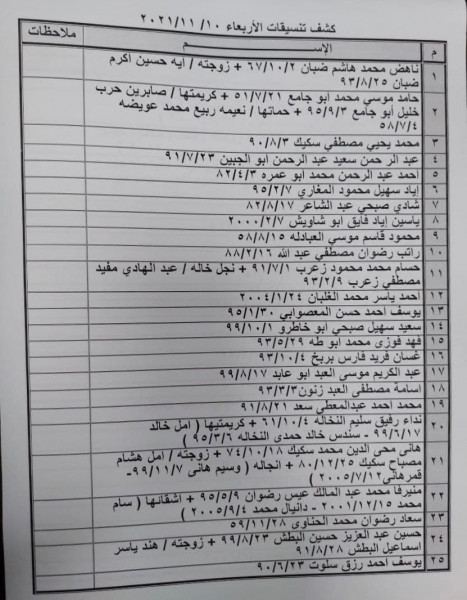 كشف تنسيقات الأربعاء ٢٠٢١/١١/١٠
م الإســـــم ملاحظات
١ ناهض محمد هاشم ضبان ٦٧/١٠/٢ + زوجته / ايه حسين اكرم
ضبان ٩٣/٨/٢٥
٢ حامد موسي محمد ابو جامع ٥١/٧/٢١ + كريمتها / صابرين حرب
خليل ابو جامع ٩٥/٩/٣ + حماتها / نعيمه ربيع محمد عويضه
٥٨/٧/٤
٣ محمد يحيي مصطفي سكيك ٩٠/٨/٣
٤ عبد الرحمن سعيد عبد الرحمن ابو الجبين ٩١/٧/٢٣
٥ احمد عبد الرحمن محمد ابو عمره ٨٢/٤/٣
٦ إياد سهيل محمود المغاري ٩٥/٢/٧
٧ شادي صبحي عبد الشاعر ٨٢/٨/١٧
٨ ياسين إياد فايق ابو شاويش ٢٠٠٠/٢/٧
٩ محمود قاسم موسي العبادله ٥٨/٨/١٥
١٠ راتب رضوان مصطفي عبد الله ٨٨/٢/١٦
١١ حسام محمد محمود زعرب ٩١/٧/١ + نجل خاله / عبد الهادي مفيد
مصطفي زعرب ٩٣/٢/٩
١٢ احمد ياسر محمد الغلبان ٢٠٠٤/١/٢٤
١٣ يوسف احمد حسن المعصوابي ٩٥/١/٣٠
١٤ سعيد سهيل صبحي ابو خاطرو ٩٩/١٠/١
١٥ فهد فوزى محمد ابو طه ٩٣/٥/٢٩
١٦ غسان فريد فارس بربخ ٩٣/١٠/٤
١٧ عبد الكريم موسى العبد ابو عابد ٩٩/٨/١٧
١٨ اسامة مصطفى العبد زنون ٩٣/٣/٣
١٩ محمد احمد عبدالمعطي سعد ٩١/٨/٢١
٢٠ نداء رفيق سليم النخاله ٦١/١٠/٤ + كريمتيها ( امل خالد
٩٩/٦/١٧ - سندس خالد حمدى النخاله ٩٥/٣/٦ )
٢١ هانى محى الدين محمد سكيك ٧٤/١٠/١٨ + زوجته / امل هشام
مصباح سكيك ٨٠/١٢/٢٥ + انجاله ( وسيم هانى ٩٩/١١/٧-
قمرهانى ٢٠٠٥/٧/١٢ )
٢٢ منيرفا محمد عبد المالك عيس رضوان ٩٥/٥/٩ + اشقائها ( سام
محمد ٢٠٠١/١٢/١٥ - دانيال محمد ٢٠٠٥/٩/٤ )
٢٣ سعاد رضوان محمد الحناوى ٥٩/١١/٢٨
٢٤ حسين عبد العزيز حسين البطش ٩٩/٨/٢٣ + زوجته / هند ياسر
اسماعيل البطش ٩١/٨/٢٨
٢٥ يوسف احمد رزق سلوت ٩٠/٦/٢٣